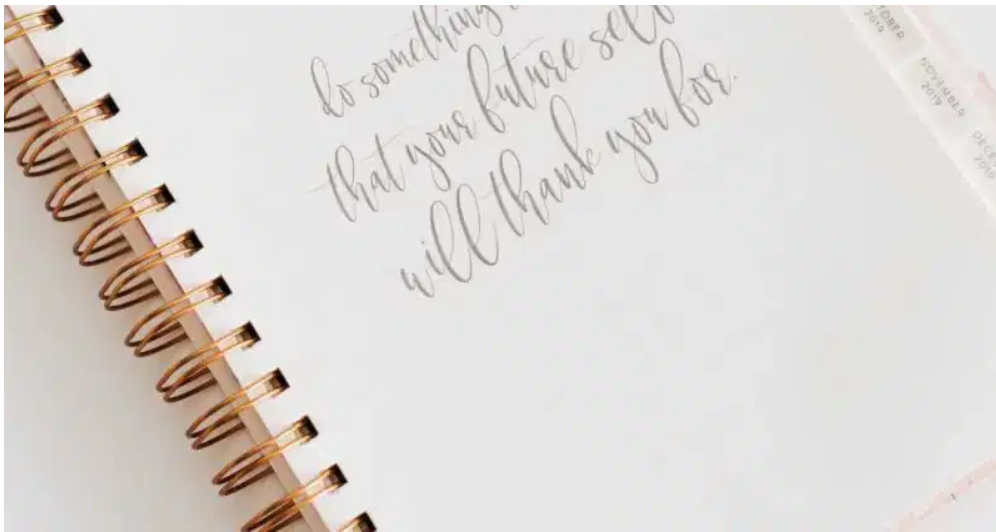 do something
that your future self
will thank you for.
OCTOBER
2019
NOVEMBER
2019
2019